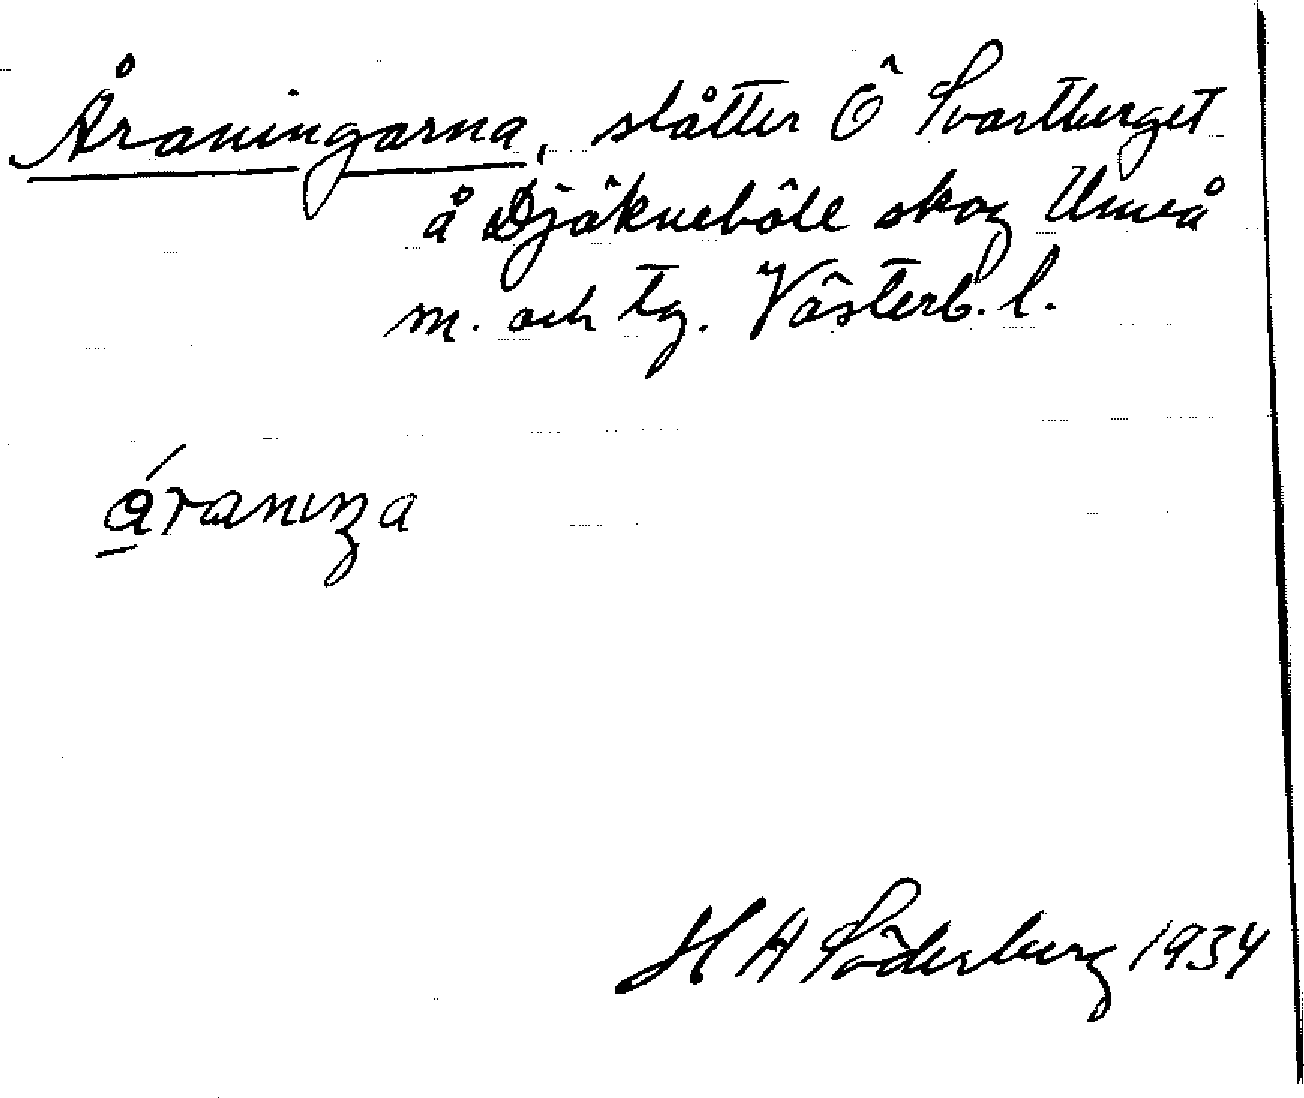 Åraningarna, slåtter Ö Svartberget
å Djäkneböle skog Umeå
m. och tg. Västerb. l.
åranıŋa
H A Söderberg 1934